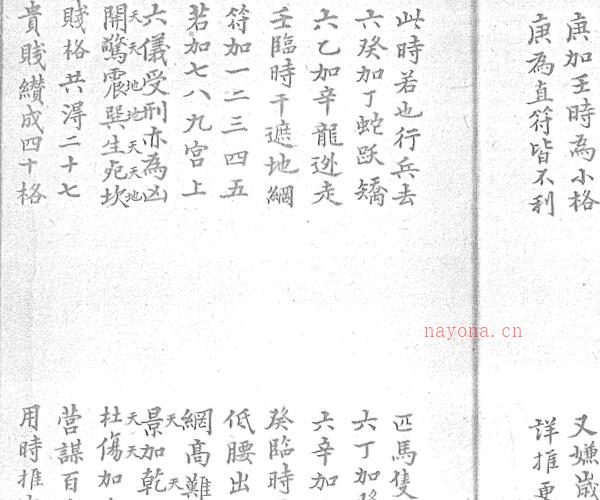 庚加壬時為小格
又嫌歲
庚為直符皆不利
詳推
此時若也行兵去
匹馬隻
六癸加丁蛇跃矯
六丁加癸
六乙加辛龍逃走
六辛加
壬臨時干遮地網
癸臨時
符加一二三四五
低腰出
若加七八九宫上
網高難
六儀受刑亦為凶
景加乾
天天
天天地地天天地
開驚震巽生死坎
天天
杜傷加
賤格共淂二十七
營謀百
貴賤纉成四十格
用時推
nayona.cn